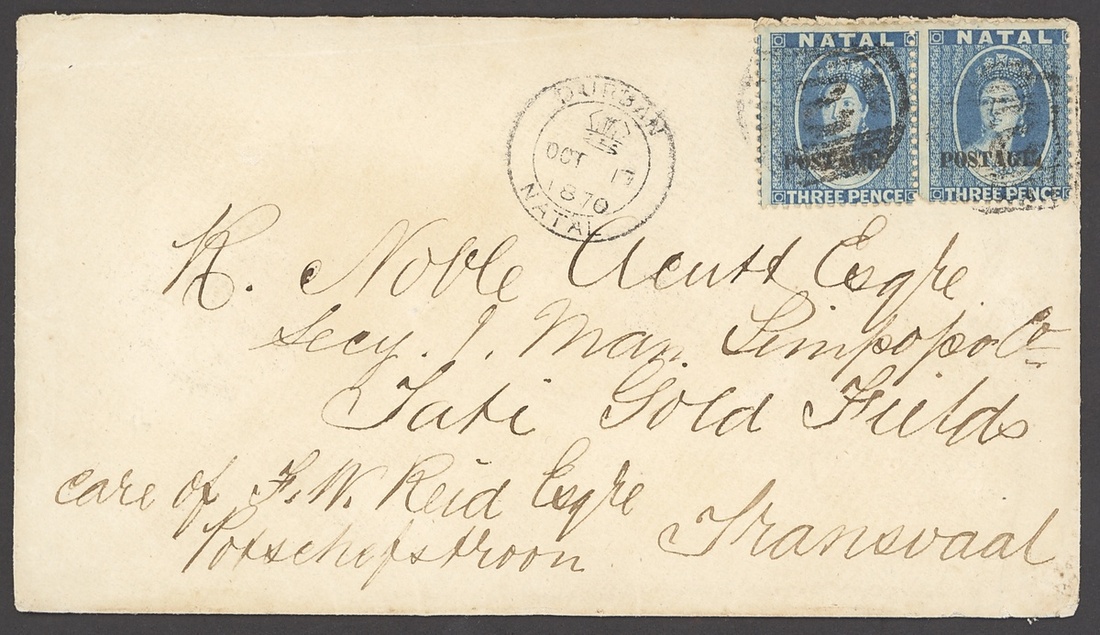 NATAL NATAL
POSTAGE. POSTAGE.
THREE PENCE THREE PENCE
DURBAN
OCT 1
1870
NATAL
R. Noble Acutt Esqre
Secy. J. Man. Limpopo Co
Tati Gold Fields
care of F. W. Reid Esqre
Potschefstroon Transvaal